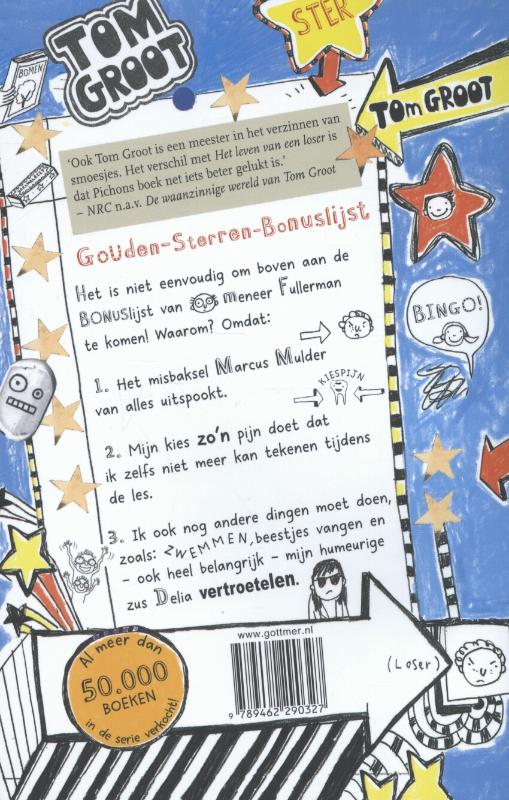 TOM
GROOT
STER
BOMEN
TOM GROOT
'Ook Tom Groot is een meester in het verzinnen van
smoesjes. Het verschil met Het leven van een loser is
dat Pichons boek net iets beter gelukt is.'
– NRC n.a.v. De waanzinnige wereld van Tom Groot
Gouden-Sterren-Bonuslijst
Het is niet eenvoudig om boven aan de
BONUSlijst van meneer Fullerman
te komen! Waarom? Omdat:
BINGO!
1. Het misbaksel Marcus Mulder
van alles uitspookt.
KIESPIJN
2. Mijn kies zo'n pijn doet dat
ik zelfs niet meer kan tekenen tijdens
de les.
3. Ik ook nog andere dingen moet doen,
zoals: ZWEMMEN, beestjes vangen en
– ook heel belangrijk – mijn humeurige
zus Delia vertroetelen.
www.gottmer.nl
9 789462 290327
(Loser)
Al meer dan
50.000
BOEKEN
in de serie verkocht!